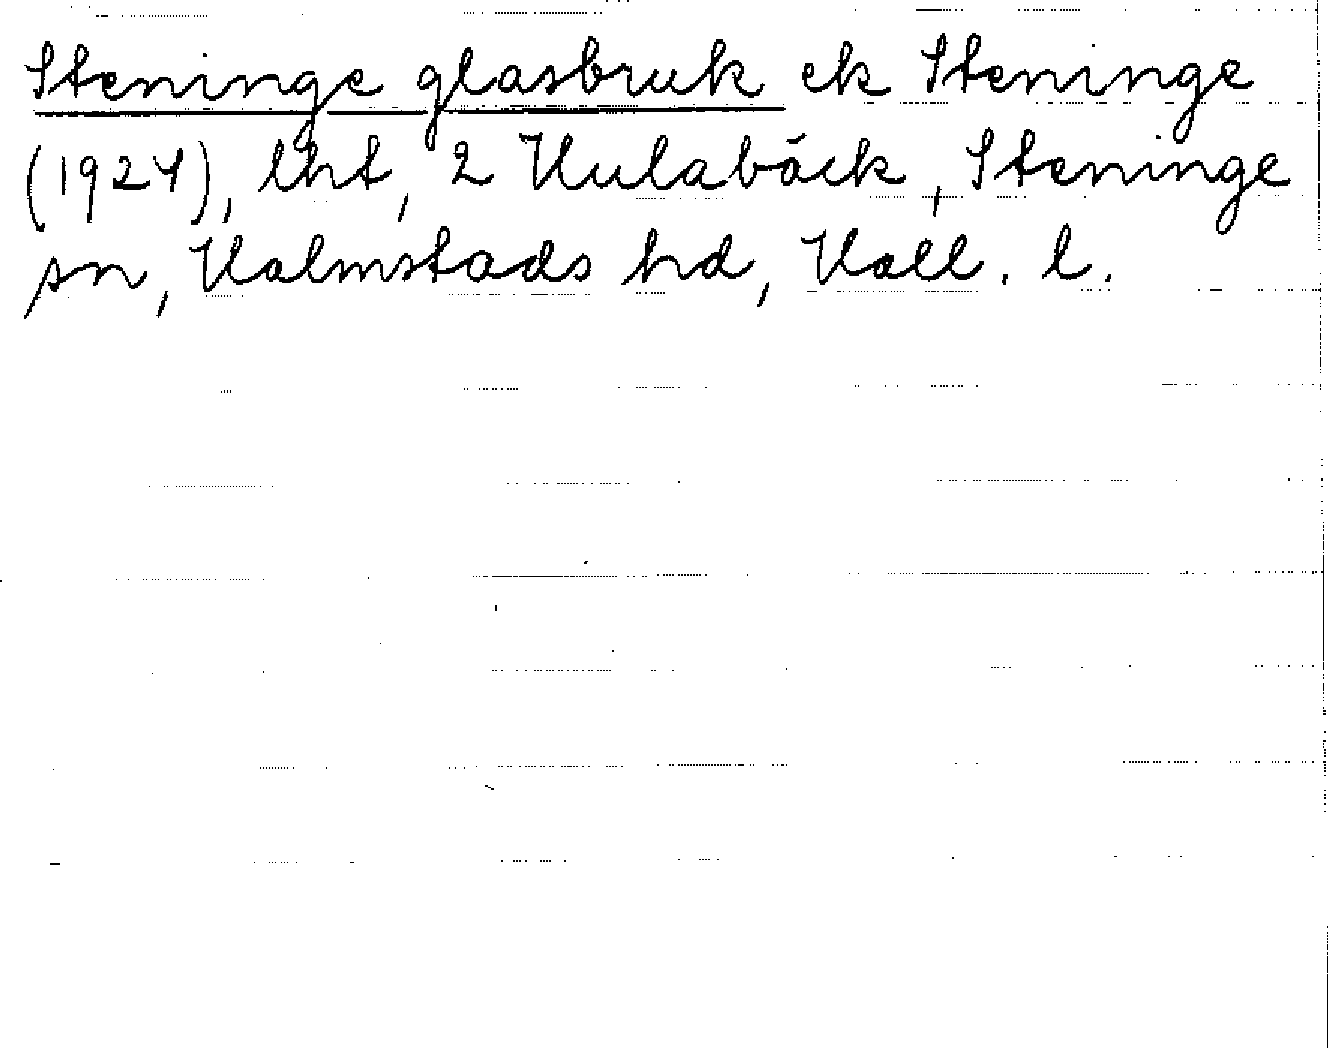 Steninge glasbruk ek Steninge
(1924), lht, 2 Hulabäck, Steninge
sn, Halmstads hd, Hall. l.